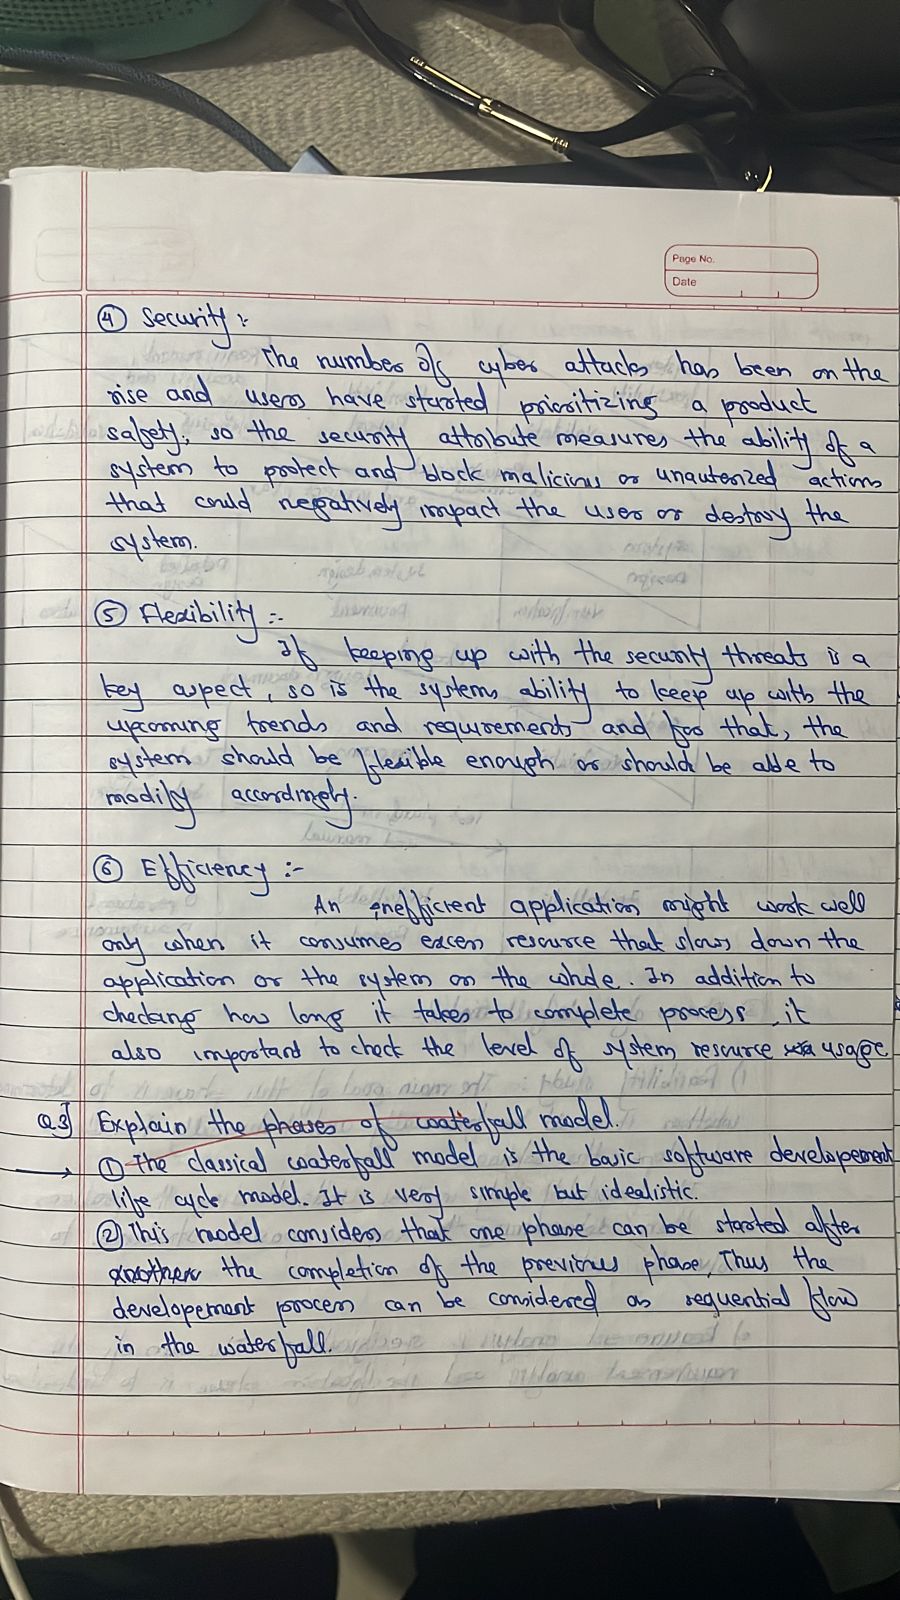 Page No.
Date
④ Security :-
The number of cyber attacks has been on the
rise and users have started prioritizing a product
safety, so the security attribute measures the ability of a
system to protect and block malicious or unauterized actions
that could negatively impact the user or destroy the
system.
⑤ Flexibility :-
If keeping up with the security threats is a
key aspect, so is the systems ability to keep up with the
upcoming trends and requirements and for that, the
system should be flexible enough or should be able to
modify accordingly.
⑥ Efficiency :-
An inefficient application might work well
only when it consumes excess resource that slows down the
application or the system on the whole. In addition to
checking how long it takes to complete process, it
also important to check the level of system resource usage
Q.3] Explain the phases of waterfall model.
→ ① The classical waterfall model is the basic software developement
life cycle model. It is very simple but idealistic.
② This model considers that one phase can be started after
the completion of the previous phase, Thus the
developement process can be considered as sequential flow
in the waterfall.